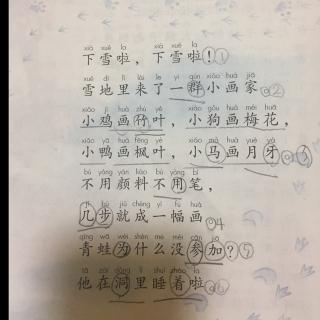 xià xuě la xià xuě la
下雪啦，下雪啦！①
xuě dì lǐ lái le yì qún xiǎo huà jiā
雪地里来了一群小画家。②
xiǎo jī huà zhú yè xiǎo gǒu huà méi huā
小鸡画竹叶，小狗画梅花，
xiǎo yā huà fēng yè xiǎo mǎ huà yuè yá
小鸭画枫叶，小马画月牙。③
bú yòng yán liào bú yòng bǐ
不用颜料不用笔，
jǐ bù jiù chéng yì fú huà
几步就成一幅画。4
qīng wā wèi shén me méi cān jiā
青蛙为什么没参加？⑤
tā zài dòng lǐ shuì zháo la
他在洞里睡着啦。6